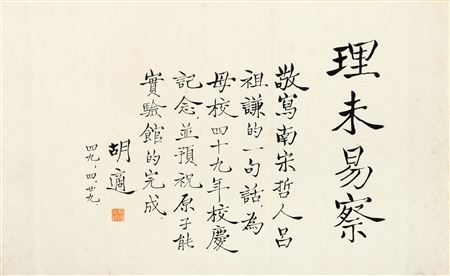 理未易察
敬寫南宋哲人呂
祖謙的一句話,為
母校四十九年校慶
記念,並預祝原子能
實驗館的完成.
胡適
四九、四、廿九